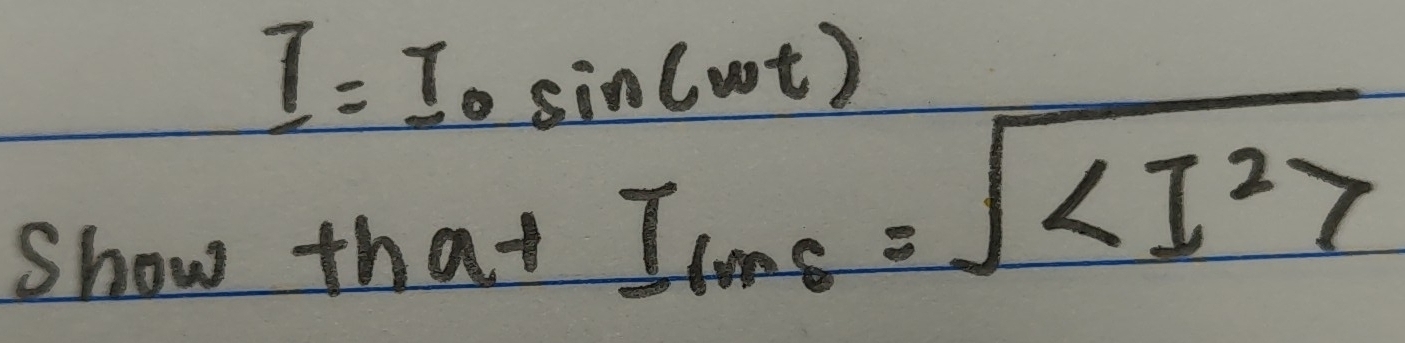 I = I₀ sin(wt)
Show that Irms = √<I²>